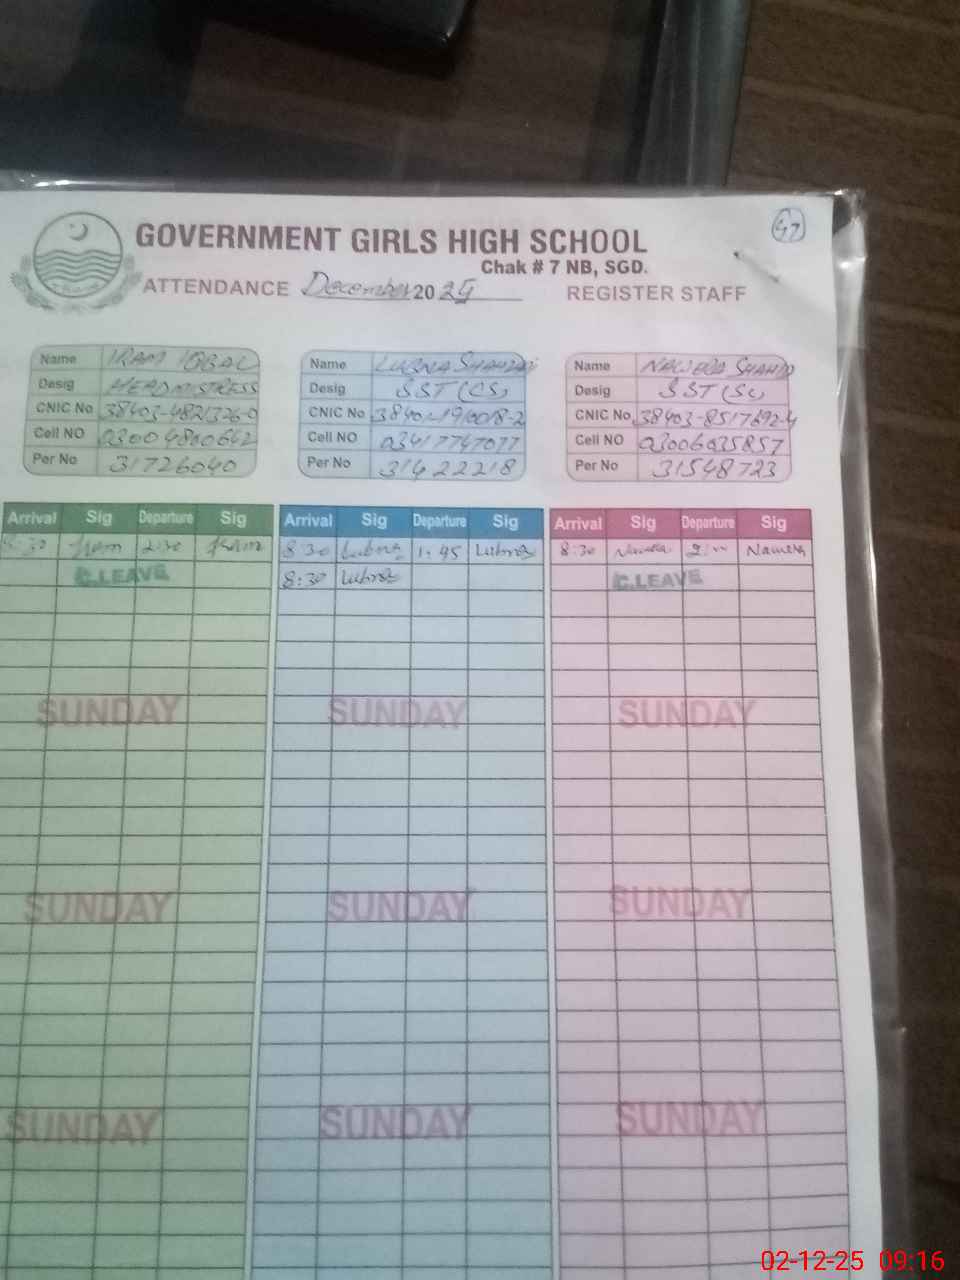 47
GOVERNMENT GIRLS HIGH SCHOOL
Chak # 7 NB, SGD.
ATTENDANCE December 2025 REGISTER STAFF
Name IRAM IQBAL
Desig HEADMISTRESS
CNIC No 38403-4821326-0
Cell NO 03004800642
Per No 31726040
Name LUBNA SHAHZADI
Desig SST (CS)
CNIC No 38401-1910018-2
Cell NO 03417747077
Per No 31422218
Name SHAHID
Desig SST (Sc)
CNIC No 38403-8517692-4
Cell NO 03006035857
Per No 31548723
Arrival Sig Departure Sig Arrival Sig Departure Sig Arrival Sig Departure Sig
:30 Iram 2:30 Iram 8:30 Lubna 1:45 Lubna 8:30 2:00
C.LEAVE 8:30 Lubna C.LEAVE
SUNDAY SUNDAY SUNDAY
SUNDAY SUNDAY SUNDAY
SUNDAY SUNDAY SUNDAY
02-12-25 09:16